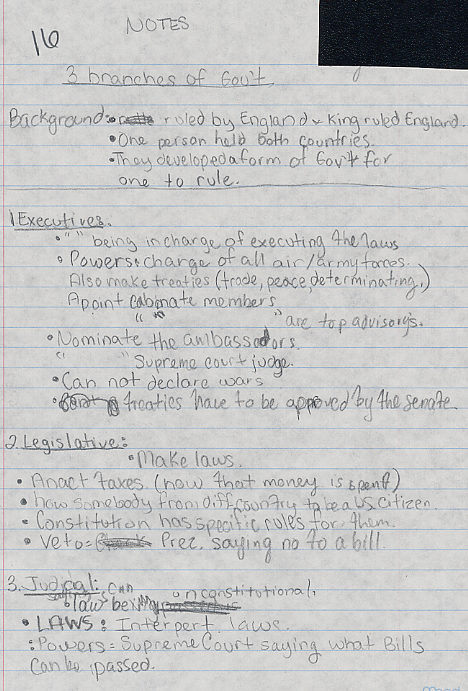 NOTES
16
3 branches of Gov't
Background: • ruled by England & King ruled England.
• One person held both countries.
• They developed a form of Gov't for
one to rule.
1 Executives.
• " " being in charge of executing the laws
• Powers: charge of all air/army forces.
Also make treaties (trade, peace, determinating,)
Apoint cabonate members
" " " are top advisory's.
• Nominate the ambassadors.
" " Supreme court judge.
• Can not declare wars
• treaties have to be approved by the senate.
2. Legislative:
• Make laws.
• Anact taxes (how that money is spent)
• how somebody from diff country to be a US citizen.
• Constitution has specific rules for them.
• Veto = Prez. saying no to a bill.
3. Judical: can
• saying law being unconstitutional,
• LAWS: Interpert laws.
: Powers = Supreme Court saying what Bills
can be passed.